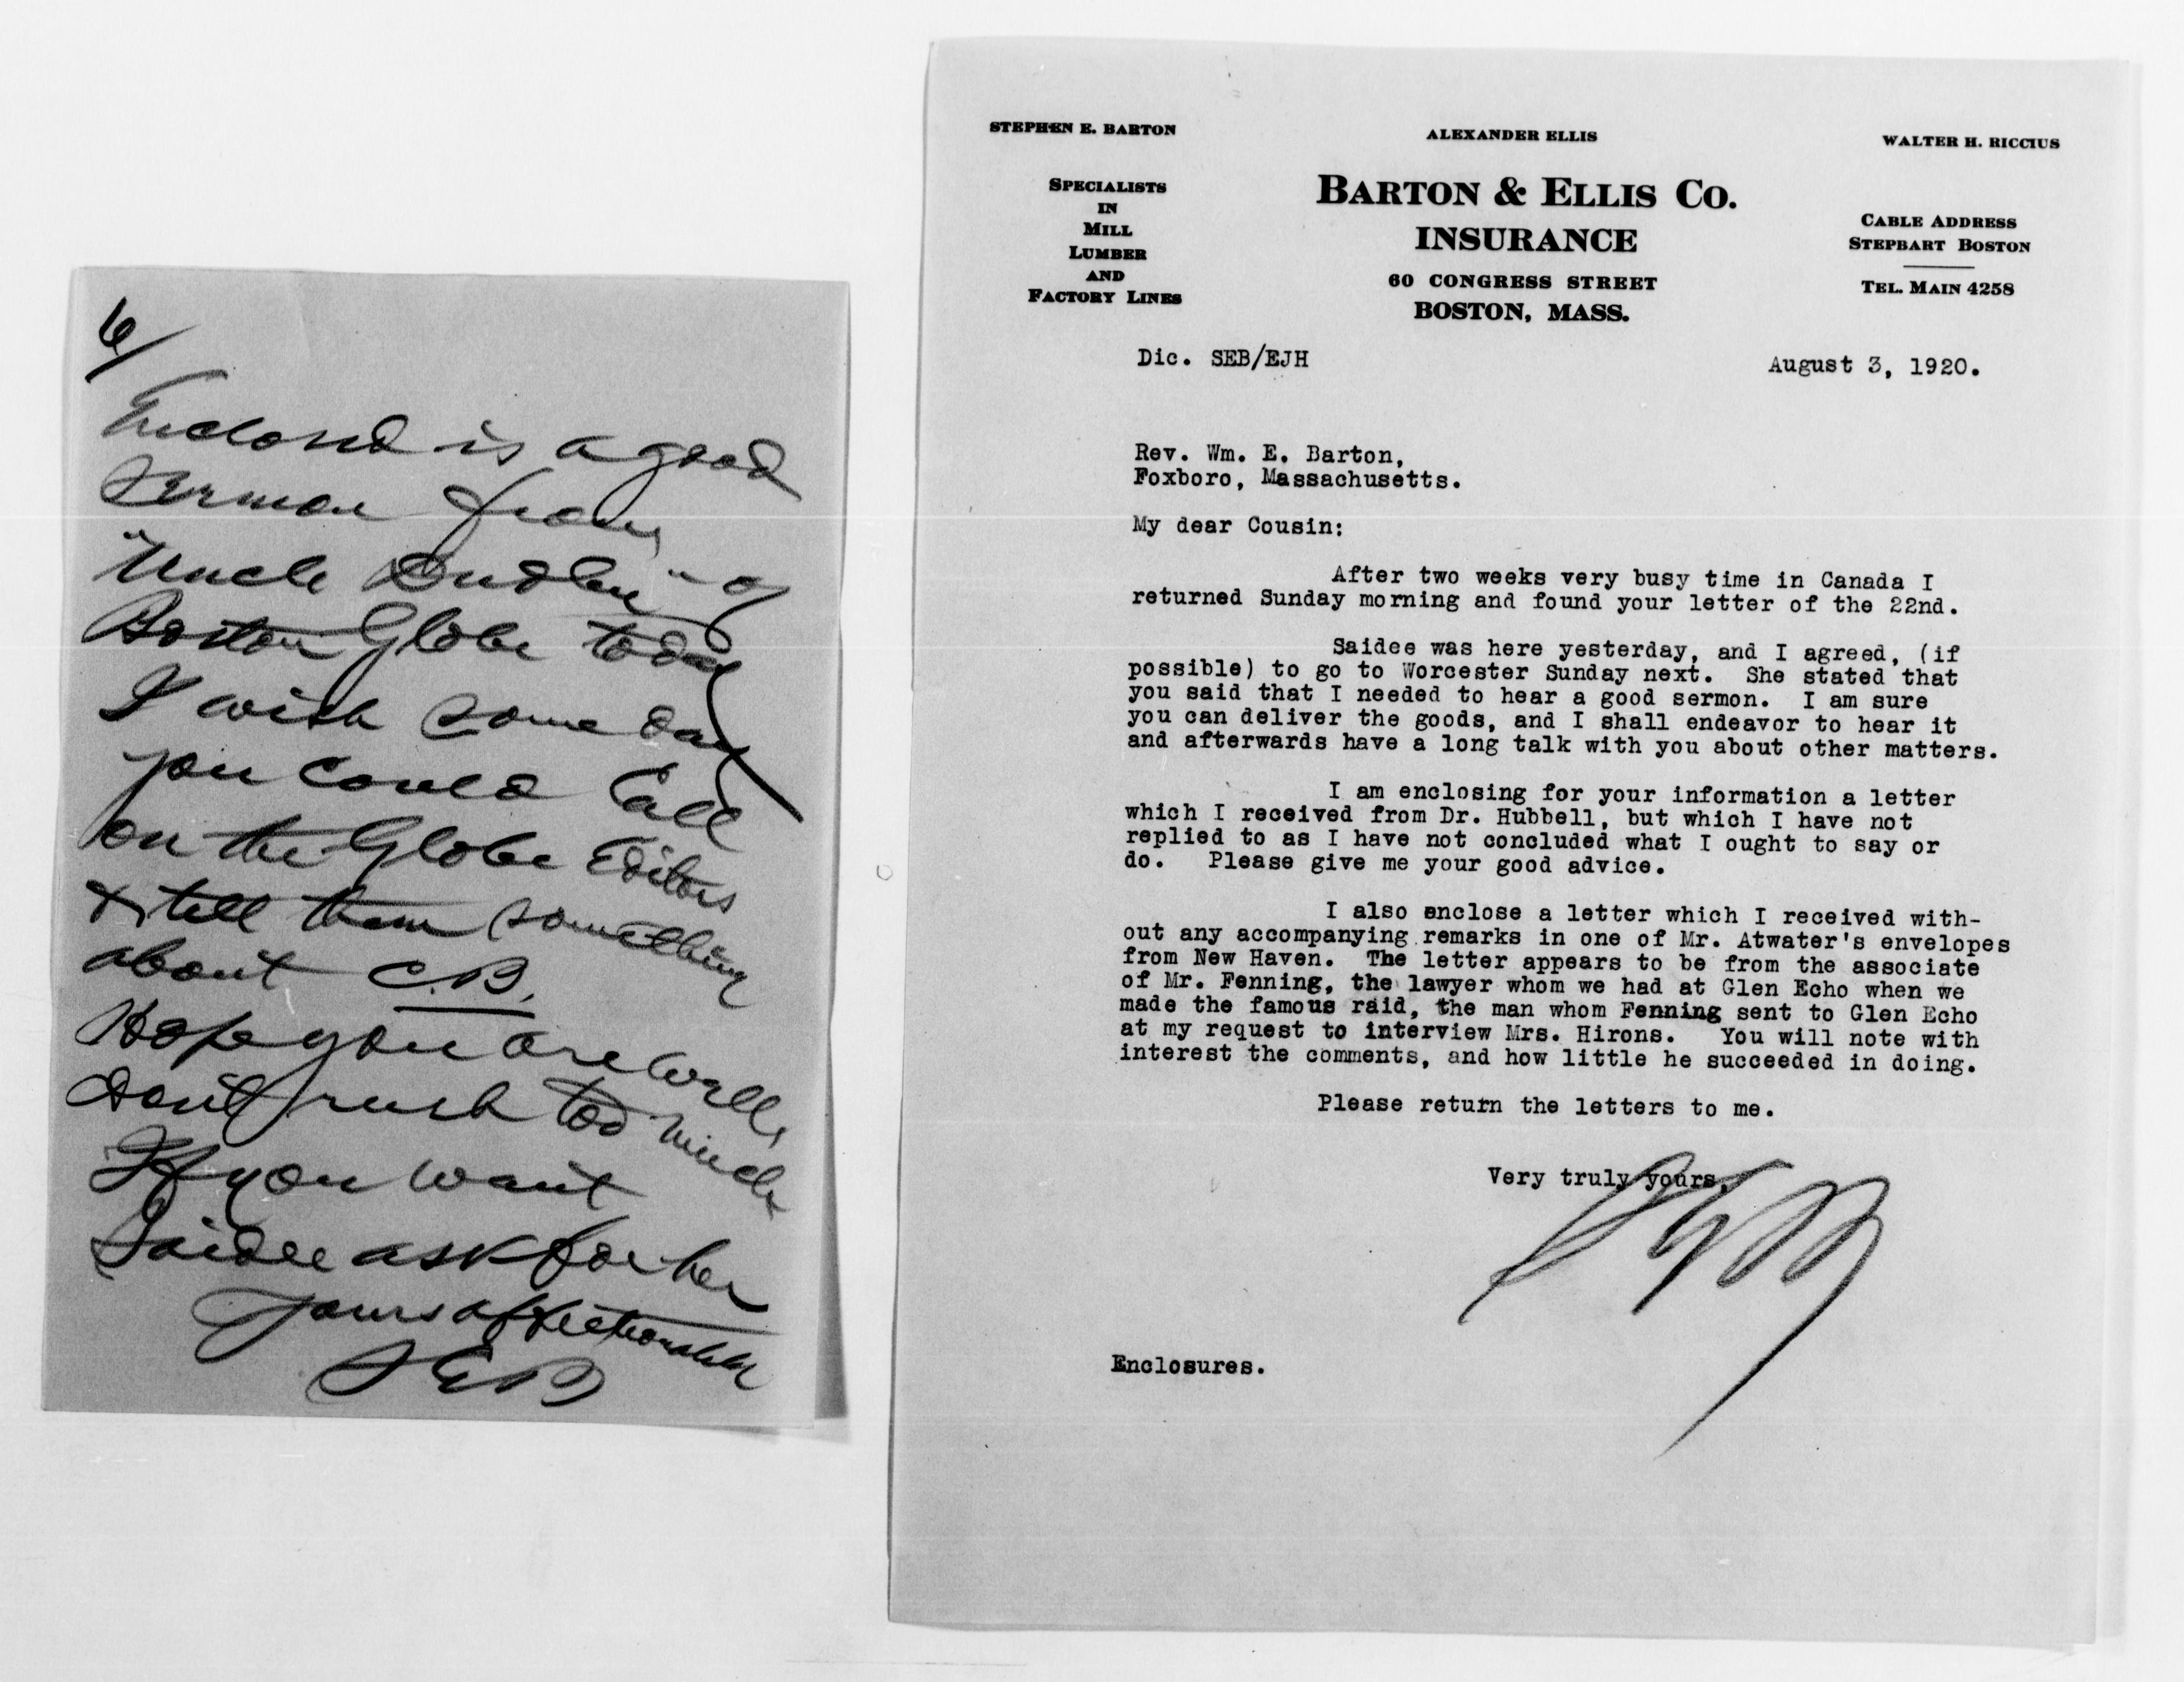 6/
Enclosed is a good
sermon from
"Uncle Dudley" of
Boston Globe today
I wish some day
you could call
on the Globe Editors
& tell them something
about C.B.
Hope you are well,
Don't rush too much
If you want
Saidee ask for her
Yours affectionately
SEB
STEPHEN E. BARTON
ALEXANDER ELLIS
WALTER H. RICCIUS
SPECIALISTS
IN
MILL
LUMBER
AND
FACTORY LINES
BARTON & ELLIS CO.
INSURANCE
60 CONGRESS STREET
BOSTON, MASS.
CABLE ADDRESS
STEPBART BOSTON
TEL. MAIN 4258
Dic. SEB/EJH
August 3, 1920.
Rev. Wm. E. Barton,
Foxboro, Massachusetts.
My dear Cousin:
After two weeks very busy time in Canada I
returned Sunday morning and found your letter of the 22nd.
Saidee was here yesterday, and I agreed, (if
possible) to go to Worcester Sunday next. She stated that
you said that I needed to hear a good sermon. I am sure
you can deliver the goods, and I shall endeavor to hear it
and afterwards have a long talk with you about other matters.
I am enclosing for your information a letter
which I received from Dr. Hubbell, but which I have not
replied to as I have not concluded what I ought to say or
do. Please give me your good advice.
I also enclose a letter which I received with-
out any accompanying remarks in one of Mr. Atwater's envelopes
from New Haven. The letter appears to be from the associate
of Mr. Fenning, the lawyer whom we had at Glen Echo when we
made the famous raid, the man whom Fenning sent to Glen Echo
at my request to interview Mrs. Hirons. You will note with
interest the comments, and how little he succeeded in doing.
Please return the letters to me.
Very truly yours,
SEB
Enclosures.